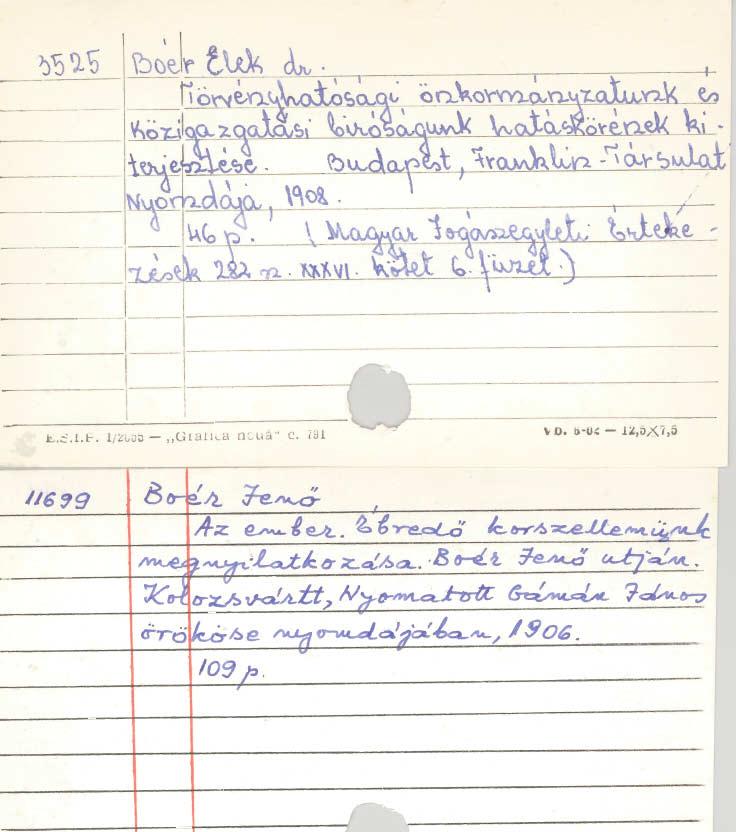 3525 Boér Elek dr.
Törvényhatósági önkormányzatunk és
közigazgatási biróságunk hatáskörének ki-
terjesztése. Budapest, Franklin-Társulat
Nyomdája, 1908.
46 p. (Magyar Jogászegyleti Érteke-
zések 282 n. XXXVI. kötet 6. füzet.)
E.S.I.P. — „Grafica nouă“ c. 791
V.D. — 12,5×7,5
11699 Boér Jenő
Az ember. Ébredő korszellemünk
megnyilatkozása. Boér Jenő utján.
Kolozsvártt, Nyomatott Gámán János
örököse nyomdájában, 1906.
109 p.